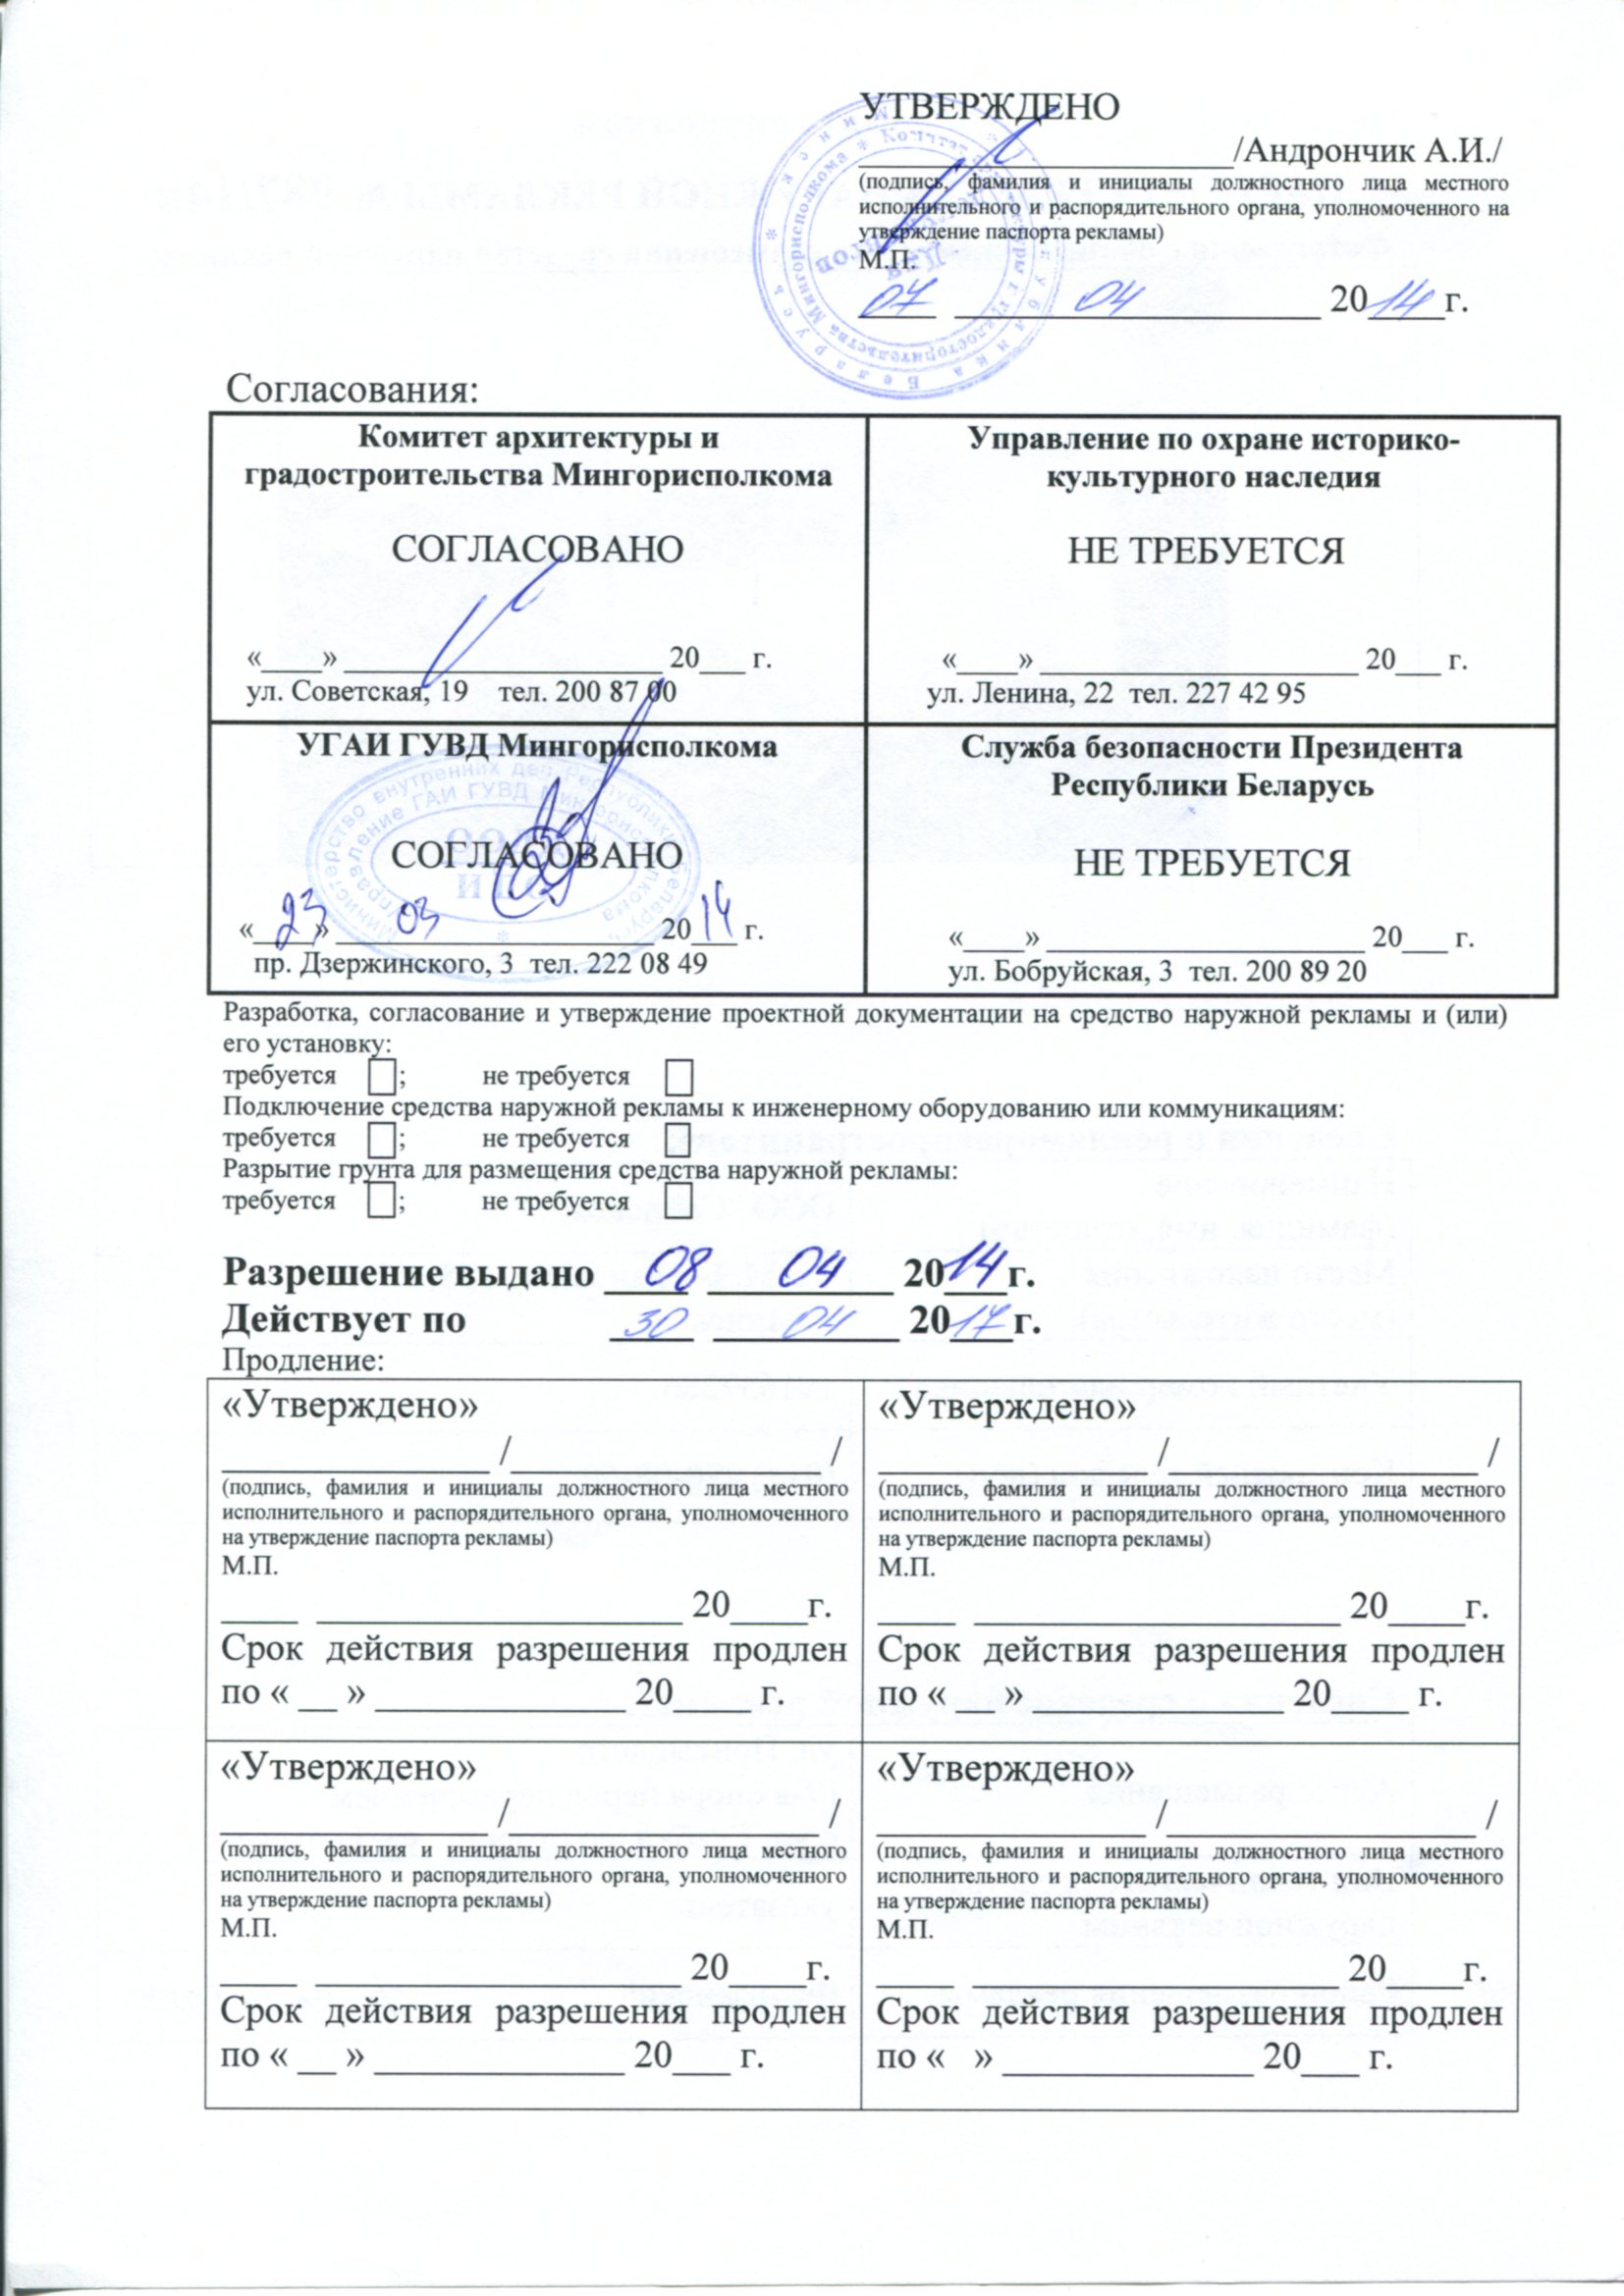 УТВЕРЖДЕНО
____________________/Андрончик А.И./
(подпись, фамилия и инициалы должностного лица местного
исполнительного и распорядительного органа, уполномоченного на
утверждение паспорта рекламы)
М.П.
07 04 2014г.
Согласования:
Комитет архитектуры и
градостроительства Мингорисполкома
СОГЛАСОВАНО
«____» ____________________ 20___ г.
ул. Советская, 19 тел. 200 87 00
Управление по охране историко-
культурного наследия
НЕ ТРЕБУЕТСЯ
«____» ____________________ 20___ г.
ул. Ленина, 22 тел. 227 42 95
УГАИ ГУВД Мингорисполкома
Министерство внутренних дел Республики Беларусь
Управление ГАИ ГУВД Мингорисполкома
СОГЛАСОВАНО
«23» 03 2014 г.
пр. Дзержинского, 3 тел. 222 08 49
Служба безопасности Президента
Республики Беларусь
НЕ ТРЕБУЕТСЯ
«____» ____________________ 20___ г.
ул. Бобруйская, 3 тел. 200 89 20
Разработка, согласование и утверждение проектной документации на средство наружной рекламы и (или)
его установку:
требуется ☐; не требуется ☐
Подключение средства наружной рекламы к инженерному оборудованию или коммуникациям:
требуется ☐; не требуется ☐
Разрытие грунта для размещения средства наружной рекламы:
требуется ☐; не требуется ☐
Разрешение выдано 08 04 2014г.
Действует по 30 04 2017г.
Продление:
«Утверждено»
______________ /________________ /
(подпись, фамилия и инициалы должностного лица местного
исполнительного и распорядительного органа, уполномоченного
на утверждение паспорта рекламы)
М.П.
____ ___________________ 20____г.
Срок действия разрешения продлен
по « __ » _____________ 20____ г.
«Утверждено»
______________ /________________ /
(подпись, фамилия и инициалы должностного лица местного
исполнительного и распорядительного органа, уполномоченного
на утверждение паспорта рекламы)
М.П.
____ ___________________ 20____г.
Срок действия разрешения продлен
по « __ » _____________ 20____ г.
«Утверждено»
______________ /________________ /
(подпись, фамилия и инициалы должностного лица местного
исполнительного и распорядительного органа, уполномоченного
на утверждение паспорта рекламы)
М.П.
____ ___________________ 20____г.
Срок действия разрешения продлен
по « __ » _____________ 20___ г.
«Утверждено»
______________ /________________ /
(подпись, фамилия и инициалы должностного лица местного
исполнительного и распорядительного органа, уполномоченного
на утверждение паспорта рекламы)
М.П.
____ ___________________ 20____г.
Срок действия разрешения продлен
по « » _____________ 20___ г.